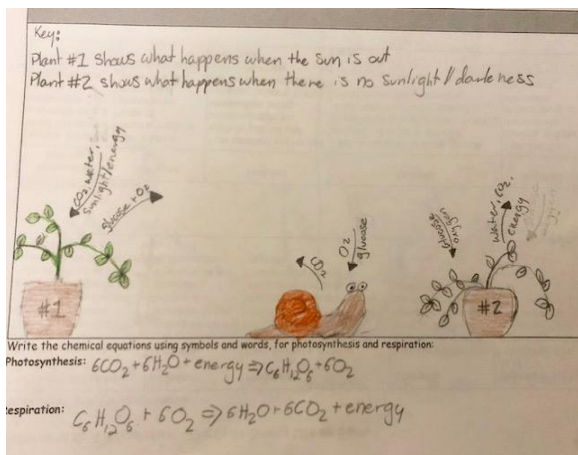 Key:
Plant #1 shows what happens when the sun is out
Plant #2 shows what happens when there is no sunlight//darkness
CO2, water,
sunlight/energy
glucose + O2
CO2
O2
glucose
glucose
oxygen
water, CO2,
energy
#1
#2
Write the chemical equations using symbols and words, for photosynthesis and respiration:
Photosynthesis: 6CO2+6H2O+energy⇒C6H12O6+6O2
espiration: C6H12O6+6O2⇒6H2O+6CO2+energy